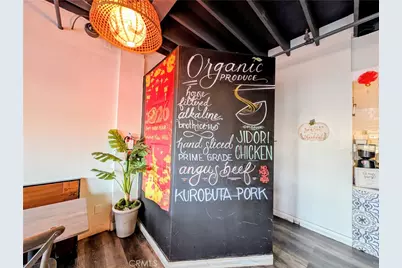 Organic
PRODUCE
house
filtered
alkaline
hand sliced
PRIME GRADE
angus beef
KUROBUTA PORK
JIDORI
CHICKEN
2020
CRMLS